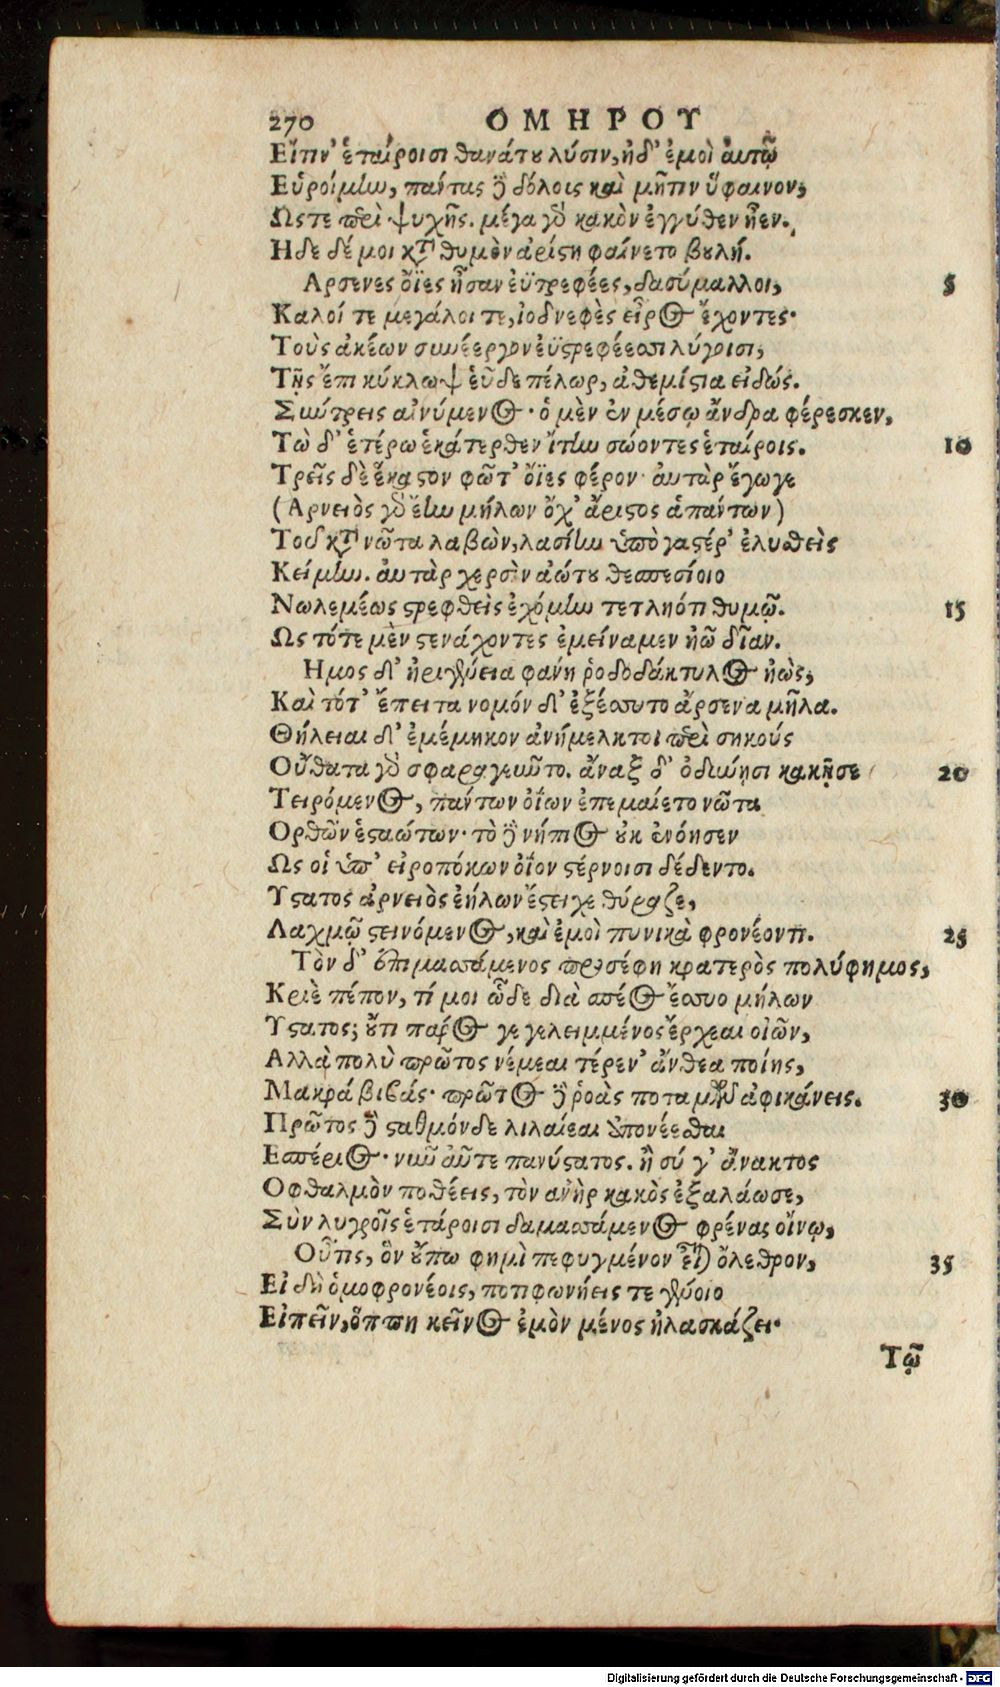 270 ΟΜΗΡΟΥ
Εἴτιν' ἑταίροισι θανάτου λύσιν, ἠδ' ἐμοὶ αὐτῷ
Εὑροίμην, πάντας δὲ δόλοις καὶ μῆτιν ὕφαινον,
Ωςτε περὶ ψυχῆς. μέγα γὰρ κακὸν ἐγγύθεν ἦεν.
Ηδε δέ μοι κατὰ θυμὸν ἀρίστη φαίνετο βουλή.
Αρσενες ὄϊες ἦσαν ἐϋτρεφέες, δασύμαλλοι, 5
Καλοί τε μεγάλοι τε, ἰοδνεφὲς εἶρος ἔχοντες·
Τοὺς ἀκέων συνέεργον ἐϋστρεφέεσσι λύγοισι,
Τῇς ἔπι κύκλωψ εὗδε πέλωρ, ἀθεμίστια εἰδώς.
Σύντρεις αἰνύμενος· ὁ μὲν ἐν μέσῳ ἄνδρα φέρεσκεν,
Τὼ δ' ἑτέρω ἑκάτερθεν ἴτην σώοντες ἑταίροις. 10
Τρεῖς δὲ ἕκαστον φῶτ' ὄϊες φέρον· αὐτὰρ ἔγωγε
(Αρνειὸς γὰρ ἔην μήλων ὄχ' ἄριστος ἁπάντων)
Τοῦ κατὰ νῶτα λαβὼν, λασίην ὑπὸ γαστέρ' ἐλυσθεὶς
Κείμην. αὐτὰρ χερσὶν ἀώτου θεσπεσίοιο
Νωλεμέως στρεφθεὶς ἐχόμην τετληότι θυμῷ. 15
Ως τότε μὲν στενάχοντες ἐμείναμεν ἠῶ δῖαν.
Ημος δ' ἠριγένεια φάνη ῥοδοδάκτυλος ἠὼς,
Καὶ τότ' ἔπειτα νομόν δ' ἐξέσσυτο ἄρσενα μῆλα.
Θήλειαι δ' ἐμέμηκον ἀνήμελκτοι περὶ σηκούς
Οὔθατα γὰρ σφαραγεῦντο. ἄναξ δ' ὀδύνῃσι κακῇσε 20
Τειρόμενος, πάντων ὀΐων ἐπεμαίετο νῶτα
Ορθῶν ἑσταώτων· τὸ δὲ νήπιος οὐκ ἐνόησεν
Ως οἱ ὑπ' εἰροπόκων ὀΐον στέρνοισι δέδεντο.
Υστατος ἀρνειὸς ἐήλων ἔστειχε θύραζε,
Λαχμῷ στεινόμενος, καὶ ἐμοὶ πυνικὰ φρονέοντι. 25
Τὸν δ' ἐπιμασσάμενος προσέφη κρατερὸς πολύφημος,
Κριὲ πέπον, τί μοι ὧδε διὰ σπέος ἔσσυο μήλων
Υστατος; οὔτι πάρος γε γελειμμένος ἔρχεαι οἰῶν,
Αλλὰ πολὺ πρῶτος νέμεαι τέρεν' ἄνθεα ποίης,
Μακρά βιβάς· πρῶτος δὲ ῥοὰς ποταμῶν ἀφικάνεις. 30
Πρῶτος δὲ σταθμόνδε λιλαίεαι ἀπονέεσθαι
Εσπέριος· νῦν αὖτε πανύστατος. ἦ σύ γ' ἄνακτος
Οφθαλμὸν ποθέεις, τὸν ἀνὴρ κακὸς ἐξαλάωσε,
Σὺν λυγροῖς ἑτάροισι δαμασσάμενος φρένας οἴνῳ,
Οὖτις, ὃν οὔπω φημὶ πεφυγμένον εἶναι ὄλεθρον, 35
Εἰ δὴ ὁμοφρονέοις, ποτιφωνήεις τε γένοιο
Εἰπεῖν, ὅππη κεῖνος ἐμὸν μένος ἠλασκάζει·
Τῷ
Digitalisierung gefördert durch die Deutsche Forschungsgemeinschaft - DFG